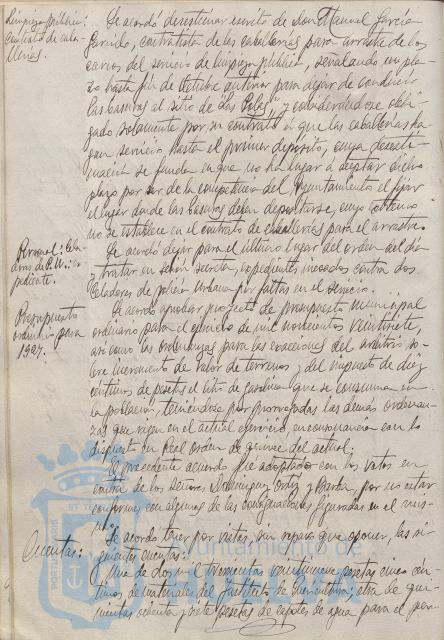 Limpieza pública:
Contrato de caba-
llerías.
Se acordó desestimar escrito de Don Manuel García
Garrido, contratista de las caballerías para arrastre de los
carros del servicio de limpieza pública, señalando un pla-
zo hasta fin de Octubre anterior para dejar de conducir
las basuras al sitio de "Las Colas", y considerándose obli-
gado solamente por su contrato a que las caballerías ha-
gan servicio hasta el primer depósito, cuya desesti-
mación se funda en que no ha lugar a aceptar dicho
plazo por ser de la competencia del Ayuntamiento el fijar
el lugar donde las basuras deban depositarse, cuyo extremo
no se establece en el contrato de caballerías para el arrastre.
Personal: Cela-
dores de P. U.: ex-
pediente.
Se acordó dejar para el último lugar del orden del día
y tratar en sesión secreta, expedientes incoados contra dos
Celadores de policía Urbana por faltas en el servicio.
Presupuesto
ordinario para
1927.
Se acordó aprobar proyecto de presupuesto municipal
ordinario para el ejercicio de mil novecientos veintisiete,
así como las ordenanzas para las exacciones del arbitrio so-
bre incremento de valor de terrenos y del impuesto de diez
céntimos de pesetas el litro de gasolina que se consuma en
la población, teniéndose por prorrogadas las demás ordenan-
zas que rigen en el actual ejercicio, en consonancia con lo
dispuesto en Real Orden de quince del actual.
El precedente acuerdo fué adoptado con los votos en
contra de los señores Domínguez Ortiz y Martín, por no estar
conforme con algunas de las consignaciones figuradas en el mis-
mo.
Cuentas:
Se acordó tener por vistas, sin reparo que oponer, las si-
guientes cuentas:
Una de dos mil trescientas veintinueve pesetas cinco cén-
timos de materiales del Instituto de Puericultura; otra de qui-
nientas ochenta y siete pesetas de de agua para el per-
Ayuntamiento de